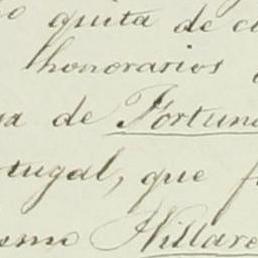 quita de
honorarios
de Fortun
tugal, que f
Villare